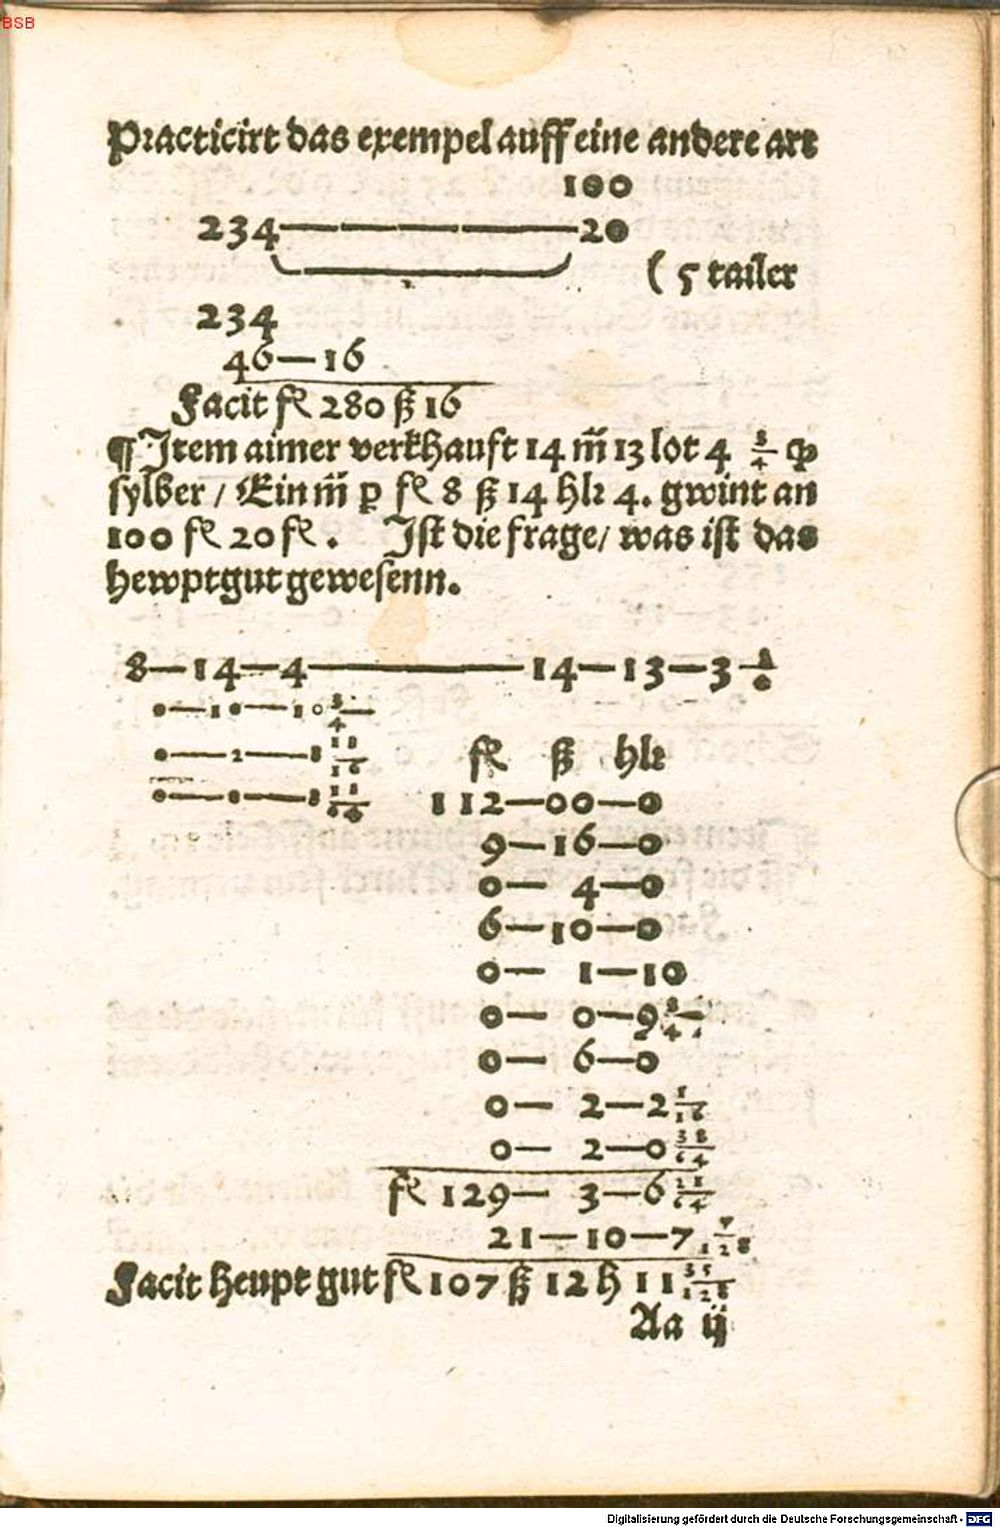 BSB
Practicirt das exempel auff eine andere art
100
234 — — — — — 20
( 5 tailer
234
46 — 16
Facit fl 280 ß 16
¶ Item aimer verkhauft 14 m̃ 13 lot 4 3/4 qp
sylber / Ein m̃ p fl 8 ß 14 hlr 4. gwint an
100 fl 20 fl . Ist die frage / was ist das
hewptgut gewesenn.
8 — 14 — 4 ——— 14 — 13 — 3
0 — 10 — 10 3/4
0 — 2 — 8 11/16
0 — 0 — 8
fl ß hlr
112 — 00 — 0
9 — 16 — 0
0 — 4 — 0
6 — 10 — 0
0 — 1 — 10
0 — 0 — 9 3/4
0 — 6 — 0
0 — 2 — 2 1/16
0 — 2 — 0 38/64
fl 129 — 3 — 6 21/64
21 — 10 — 7
Facit heupt gut fl 107 ß 12 h 11 35/128
Aa ij
Digitalisierung gefördert durch die Deutsche Forschungsgemeinschaft - DFG